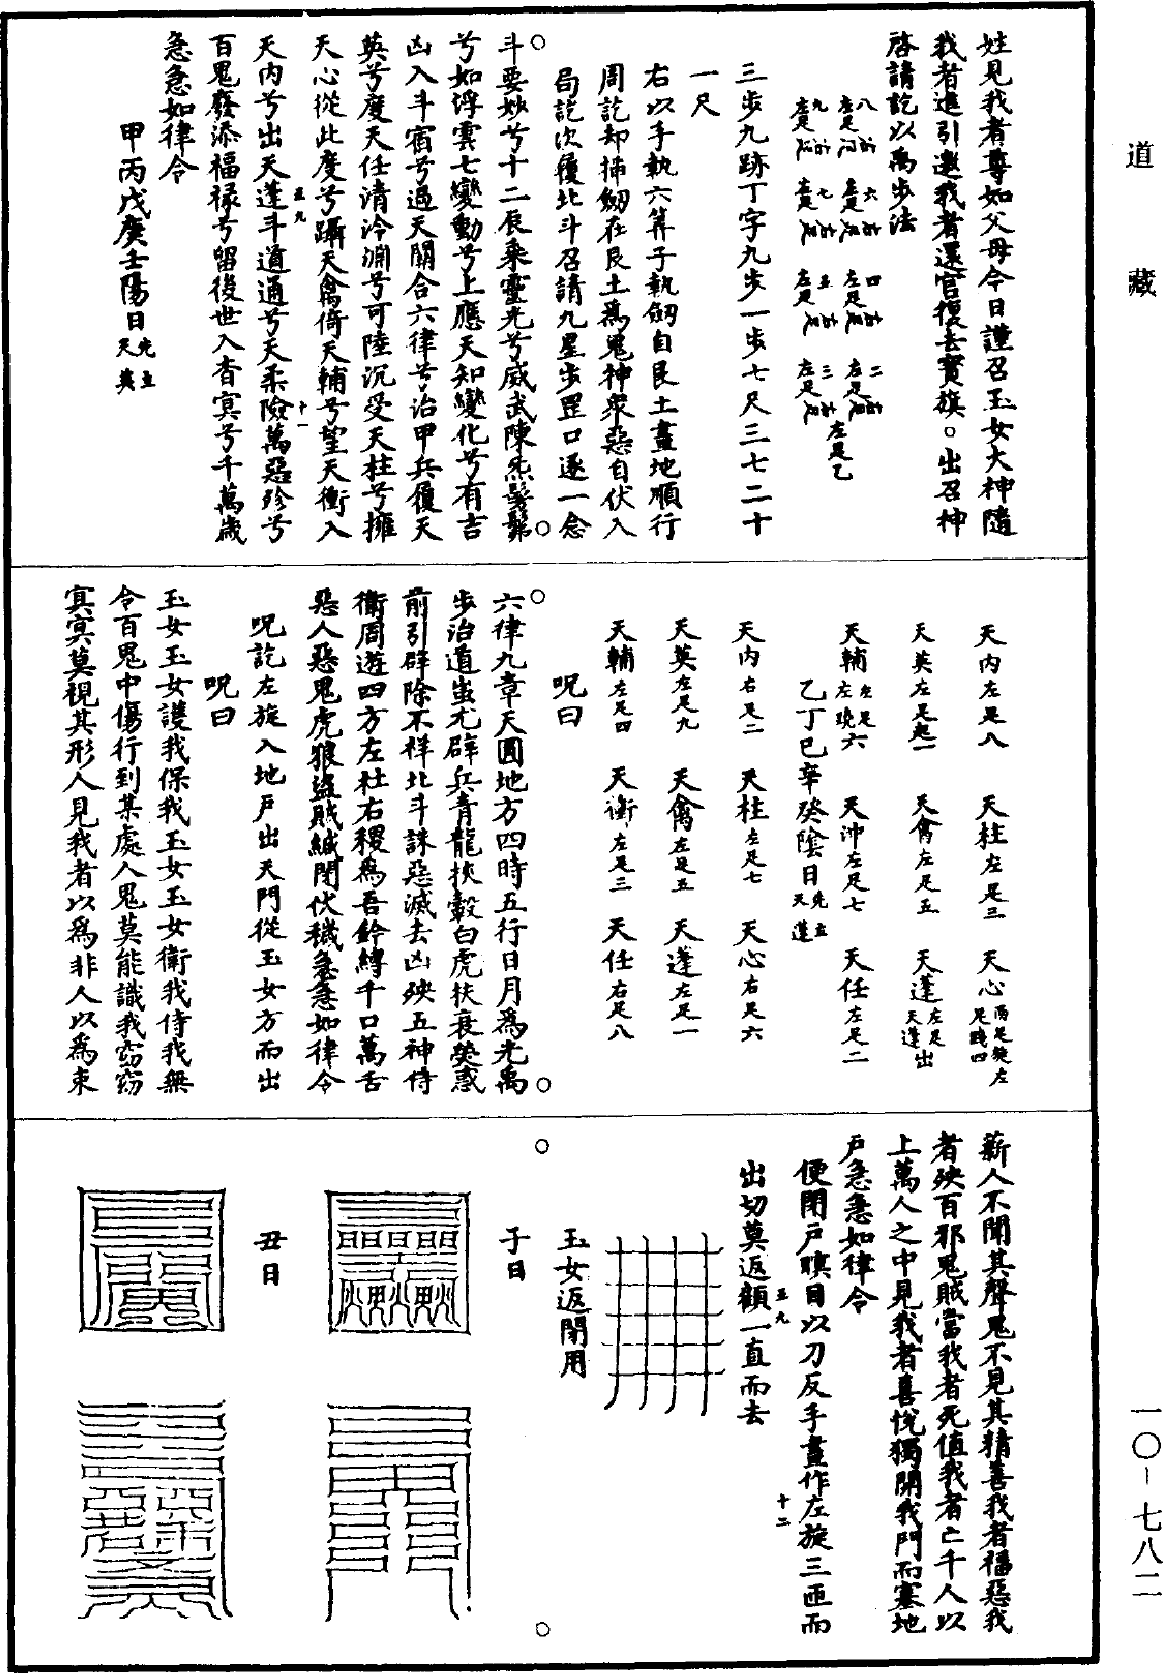 道藏
姓見我者尊如父母今日謹召玉女大神隨
我者進引邀我者還官復去寶旗。出召神
啓請訖以禹步法
三步九跡丁字九步一步七尺三七二十
一尺
右以手執六筭子執劒自艮土畫地順行
周訖却挿劒在艮土爲鬼神衆惡自伏入
局訖次履北斗召請九星步罡口逐一念
斗要妙兮十二辰乘靈光兮威武陳炁髣髴
兮如浮雲七變動兮上應天知變化兮有吉
凶入斗宿兮過天關合六律兮治甲兵履天
英兮度天任清泠淵兮可陸沉受天柱兮擁
天心從此度兮躡天禽倚天輔兮望天衝入
天内兮出天蓬斗道通兮天柔險萬惡殄兮
百鬼廢添福禄兮留後世入杳冥兮千萬歲
急急如律令
甲丙戊庚壬陽日先立天英
天内左足八 天柱左足三 天心兩足旋左足踐四
天英左足起一 天禽左足五 天蓬左足天蓬出
天輔左足左曉六 天沖左足七 天任左足二
乙丁巳辛癸陰日先立天蓬
天内右足二 天柱左足七 天心右足六
天英左足九 天禽左足五 天蓬左足一
天輔左足四 天衝左足三 天任右足八
呪曰
六律九章天圓地方四時五行日月爲光禹
步治道蚩尤辟兵青龍挾轂白虎扶衰熒惑
前引辟除不祥北斗誅惡滅去凶殃五神侍
衛周遊四方左社右稷爲吾鈴縛千口萬舌
惡人惡鬼虎狼盜賊緘閉伏穢急急如律令
呪訖左旋入地戶出天門從玉女方而出
呪曰
玉女玉女護我保我玉女玉女衛我侍我無
令百鬼中傷行到某處人鬼莫能識我窈窈
冥冥莫視其形人見我者以爲非人以爲束
薪人不聞其聲鬼不見其精善我者福惡我
者殃百邪鬼賊當我者死值我者亡千人以
上萬人之中見我者喜悅獨開我門而塞地
戶急急如律令
便閉戶瞑目以刀反手畫作左旋三匝而
出切莫返顧一直而去
玉女返閉用
子日
丑日
一〇-七八二